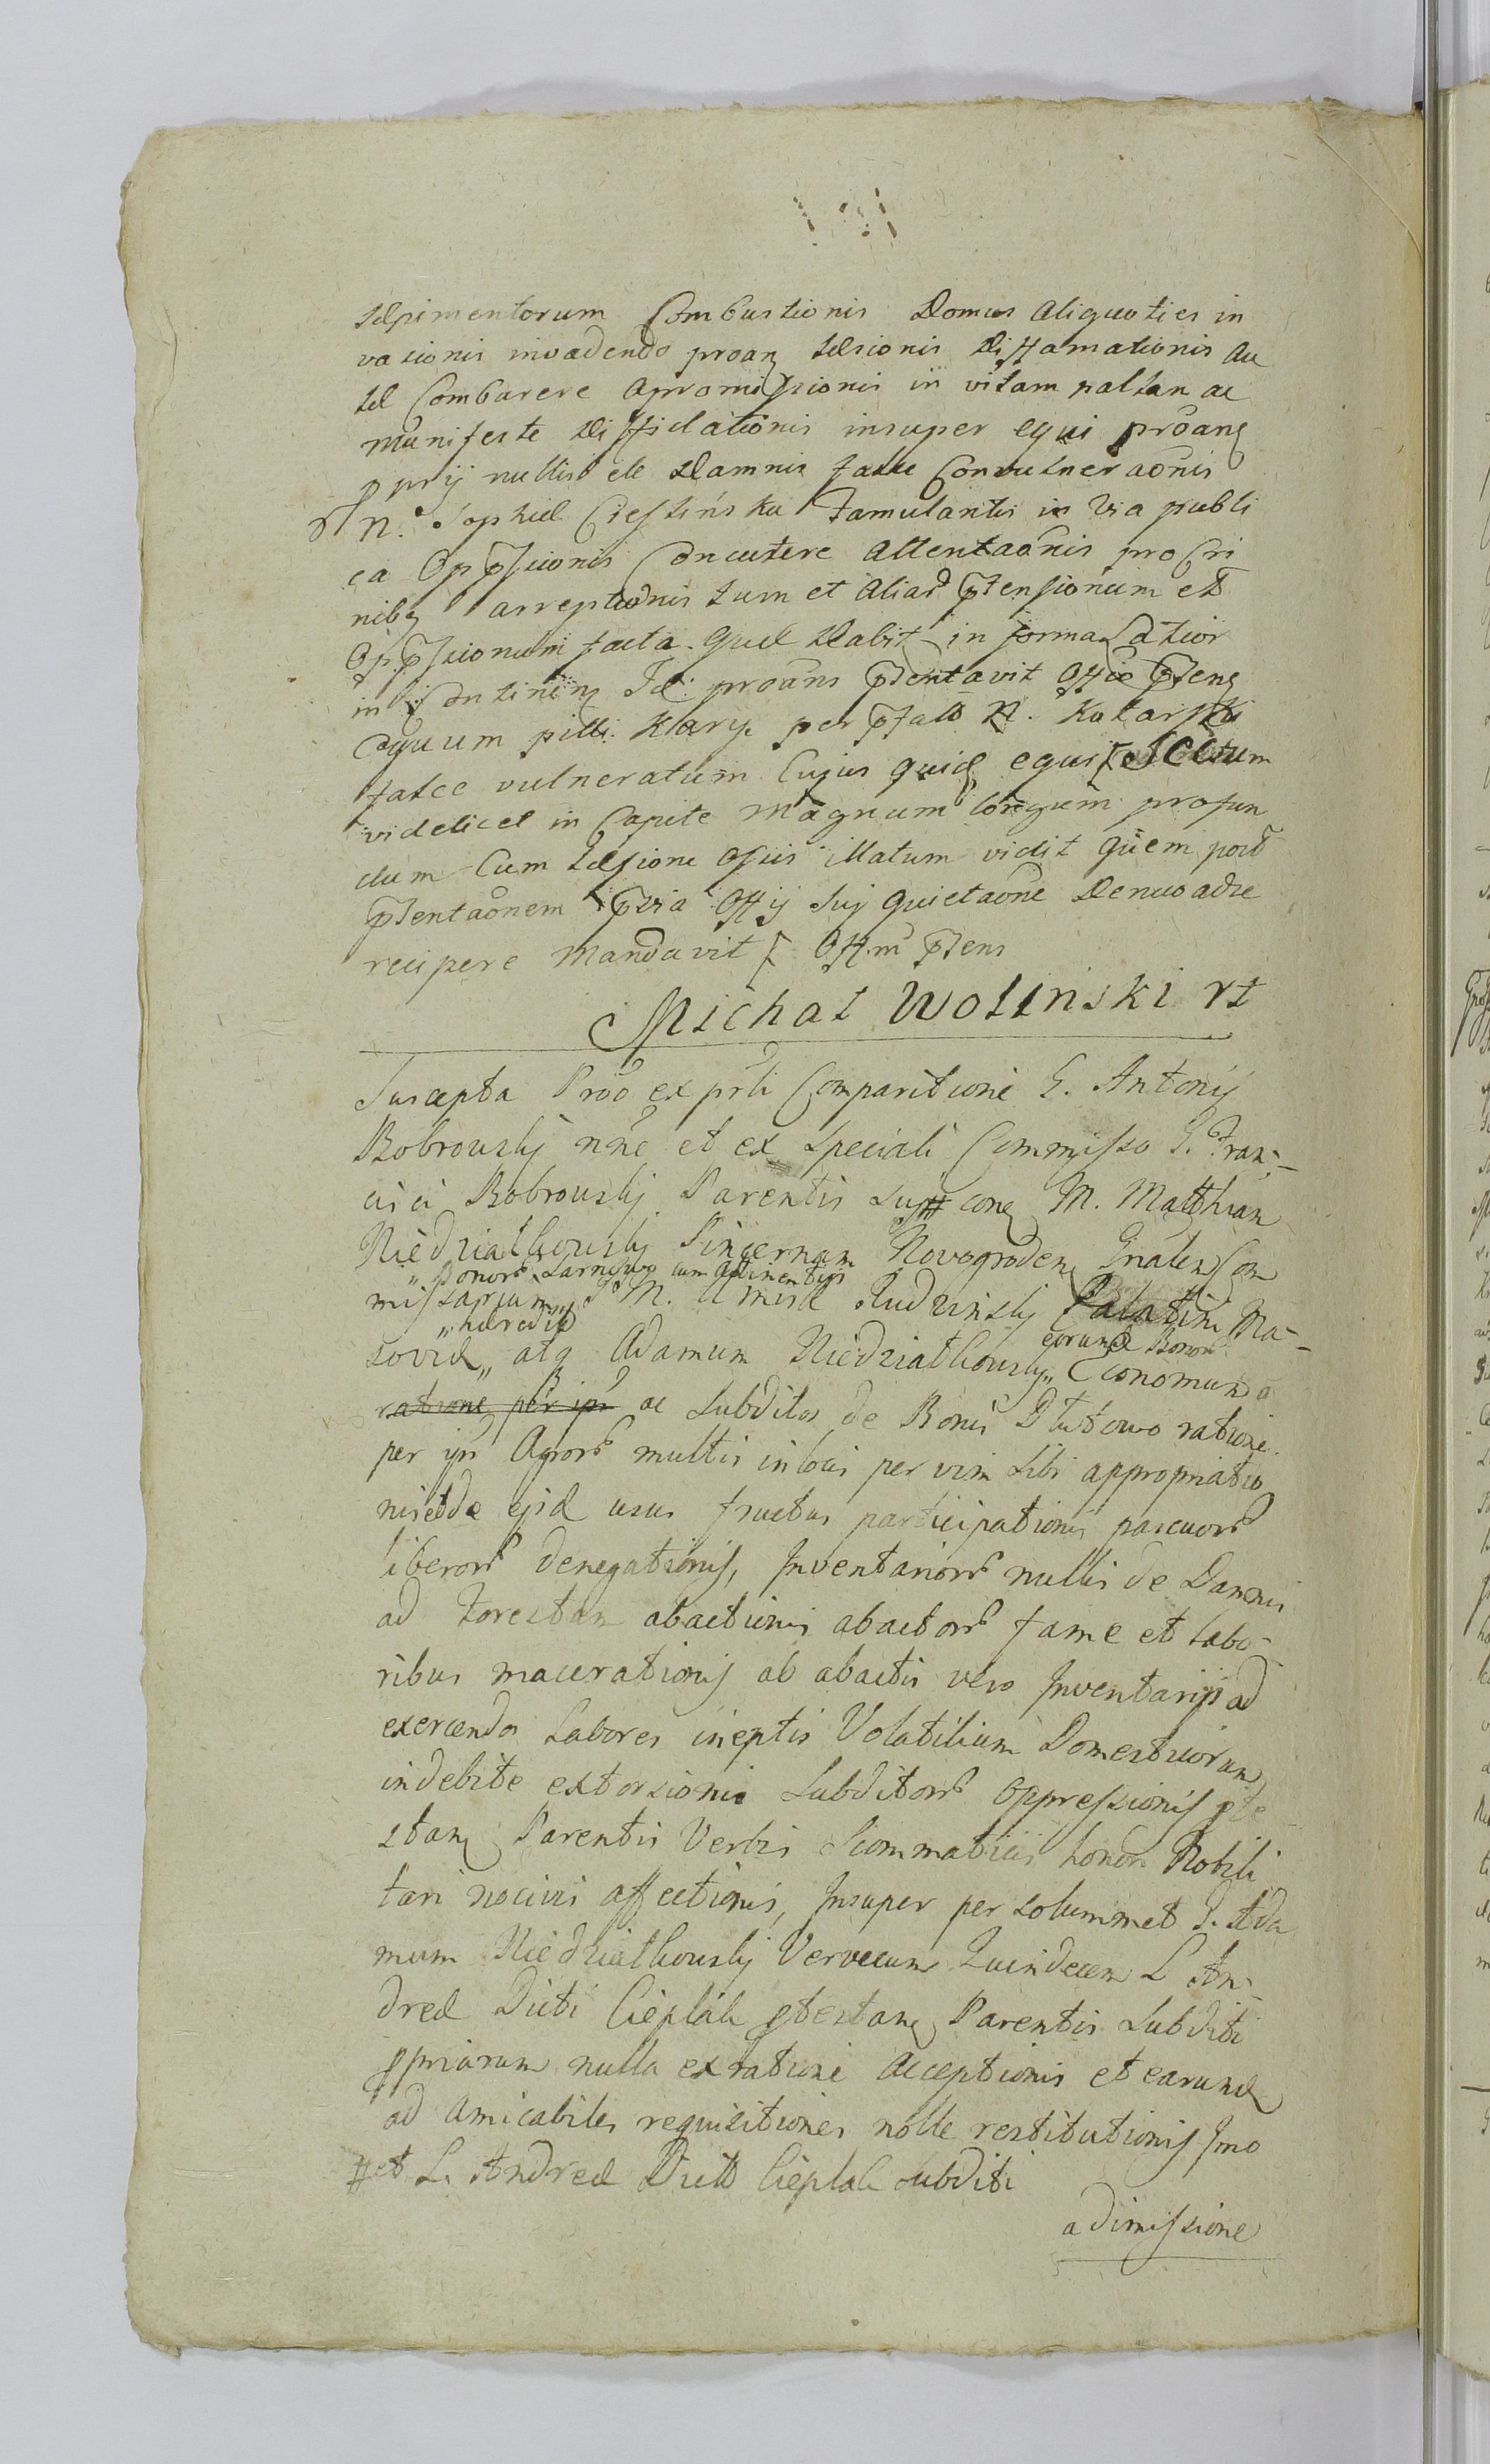 sepimentorum Combustionis Domus aliquoties in
vasionis invadendo proan læsionis Diffamationis au
sæ Combarere apromissionis in vitam paltam ac
manifeste Diffidationis insuper equi proanq
pprij nullis de Damnis falce Convulneraonis
N. Sophiæ Cieslinska Famulantis in via publi
ca Oppssionis Concutere attentaonis pro Cri
nibq arreptionis tum et aliar ptensionum et
Oppssionum facta. Quæ Dabit in forma Latior
in Continenq Id proans ptentavit Offio pstenq
equum pilli Kary per pfato N. Kotarski
falce vulneratum Cujus quidq equi Sectum
videlicet in Capite magnum longum profun
dum Cum læsione ossis illatum vidit quem post
pstentaonem pvia Offij sui quietaone Denuo adse
recipere mandavit Offm pstens
Michał Woliński rt
Suscepta Proo ex prli Comparitione G. Antonij
Bobrowskj nne et ex speciali Commisso G. Fran-
cisci Bobrowskj Parentis sui conq M. Matthian
Niedziałkowskj Pincernam Novogroden Gnalem Com
„Bonor Sarnowo cum attinentijs
missarium M. Rudzinskj Palatini Ma-
„hæredis
soviæ„ atq Adamum Niedziałkowskj„ Œconomum a
eorund Bonor
ratione per ips ac subditos de Bonis Dłutowo ratione
per ips Agror multis in locis per vim sibi appropriatio
nis et de ejsd usus fructus participationis pascuor
liberor denegationis, Inventarior nullis de Damnis
ad Forestam abactionis abactor fame et labo-
ribus macerationis ab abactis vero Inventarijs ad
exercendos Labores ineptis Volatilium Domesticorum
indebite extorsionis subditor oppressionis pte
stanq Parentis Verbis Scommaticis honori Nobili
tari nocivis affectionis, Insuper per solummet G. Ada
mum Niedziałkowskj Vervecum Quindecem L An-
dreæ Dicti Cieplak ptestanq Parentis subditi
ppriarum nulla ex ratione acceptionis et earundq
ad amicabiles requisitiones nolle restitutionis Imo
#et L. Andreæ Dicti Cieplak subditi
adimissione